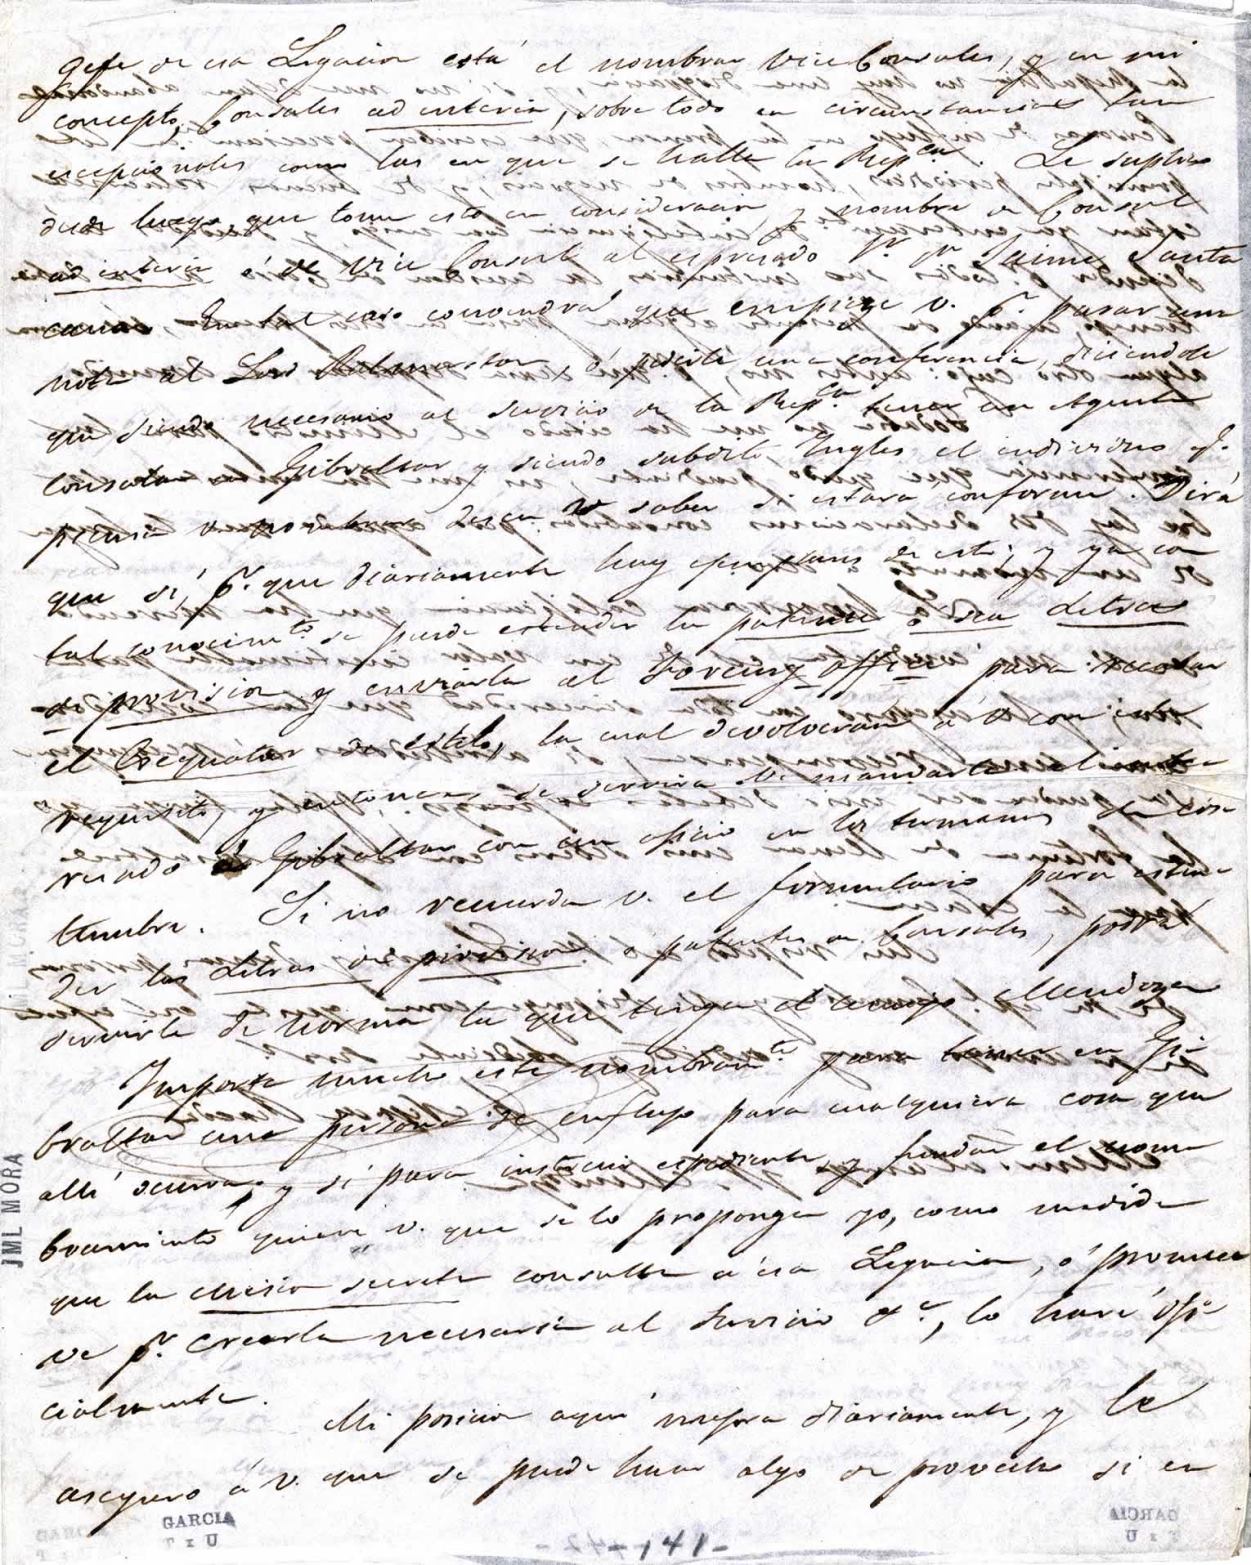 gefe de esa Legacion está el nombrar Vice Consules, y en mi
concepto, Consules ad interin, sobre todo en circunstancias tan
escepcionales como las en que se halla la Repca. Le suplico
desde luego, que tome esto en consideracion y nombre de Consul
ad interin ó de Vice Consul al espresado Sr. Dn Jaime Santa
cana. En tal caso convendrá que empieze V. pr. pasar una
nota al Lord Palmerston ó pedirle una conferencia, diciendole
que siendo necesario al servicio de la Repca. tener un Agente
Consular en Gibraltar y siendo subdito Ingles el individuo q.
piensa nombrar desea V. saber si estará conforme. Dirá
que sí, pr. que diariamente hay ejemplares de esto; y ya con
tal conocimto. se puede estender la patente ó sea Letras
de provision y enviarla al Foreing Office para recabar
el Exequatur de estilo, la cual devolverán á V. con este
requisito, y entonces se servirá V. mandarla al interesado
á Gibraltar con un oficio en los terminos de cos
tumbre. Si no recuerda V. el formulario para esten
der las Letras de provision ó patentes de Consules, podrá
servirle de norma la que tenga el amigo Mendoza
Importa mucho este nombramto. para tener en Gi
braltar una persona de influjo para cualquiera cosa que
allí ocurra; y si para instruir espediente y fundar el nom
bramiento quiere V. que se lo proponga yo, como medida
que la Mision secreta consulta á esa Legacion, ó promue
ve pr. creerla necesaria al servicio &a., lo haré ofi
cialmente.
Mi posicion aqui mejora diariamente, y le
aseguro á V. que se puede hacer algo de provecho si en
JML MORA
GARCIA
T x U
-141-